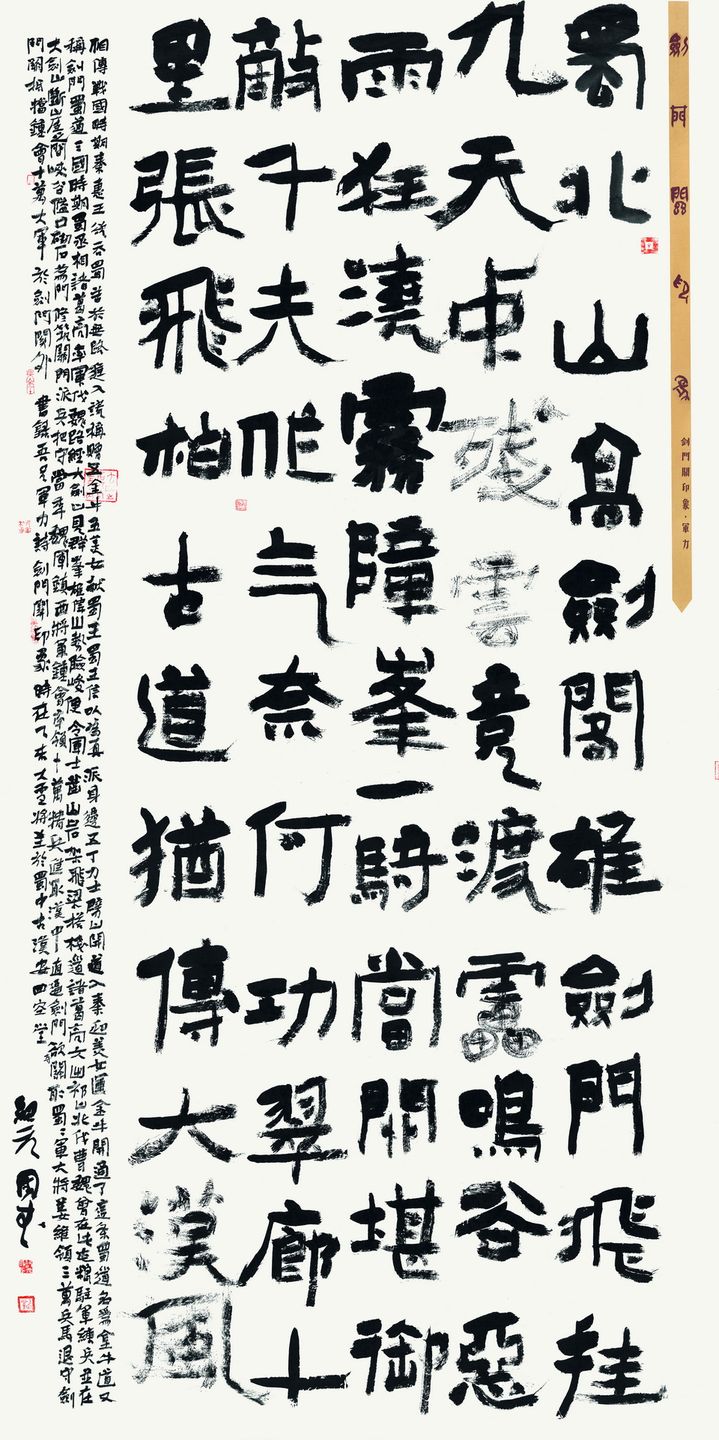 劍門關印象
剑門關印象·軍方
蜀北山高劍閣雄劍門飛挂
九天中殘雲竟渡靁鳴谷惡
雨狂澆霧障峯一騎當関堪御
敵千夫作气奈何功翠廊十
里張飛柏古道猶傳大漢風
相傳戰國時期秦惠王欲吞蜀苦於無路進入謊稱贈五金牛五美女献蜀王蜀王信以為真派身邊五丁力士劈山開道入秦迎美女運金牛開通了這条蜀道名為金牛道又
稱劍門蜀道三國時期蜀丞相諸葛亮率軍伐魏路經大劍山見群峯雄偉山勢險峻便令軍士鑿山岩架飛梁搭棧道諸葛亮六出祁山北伐曹魏曾在此屯糧駐軍練兵並在
大劍山斷崖之間峽谷隘口砌石為門修築關門派兵把守當年魏軍鎮西將軍鍾會率領十萬精兵進取漢中直逼劍門欲關蜀軍大將姜維領三萬兵馬退守劍
門關抵擋鍾會十萬大軍於劍門關外 書録吾兄軍力詩劍門關印象時在乙未大雪將至於蜀中古漢安四空堂